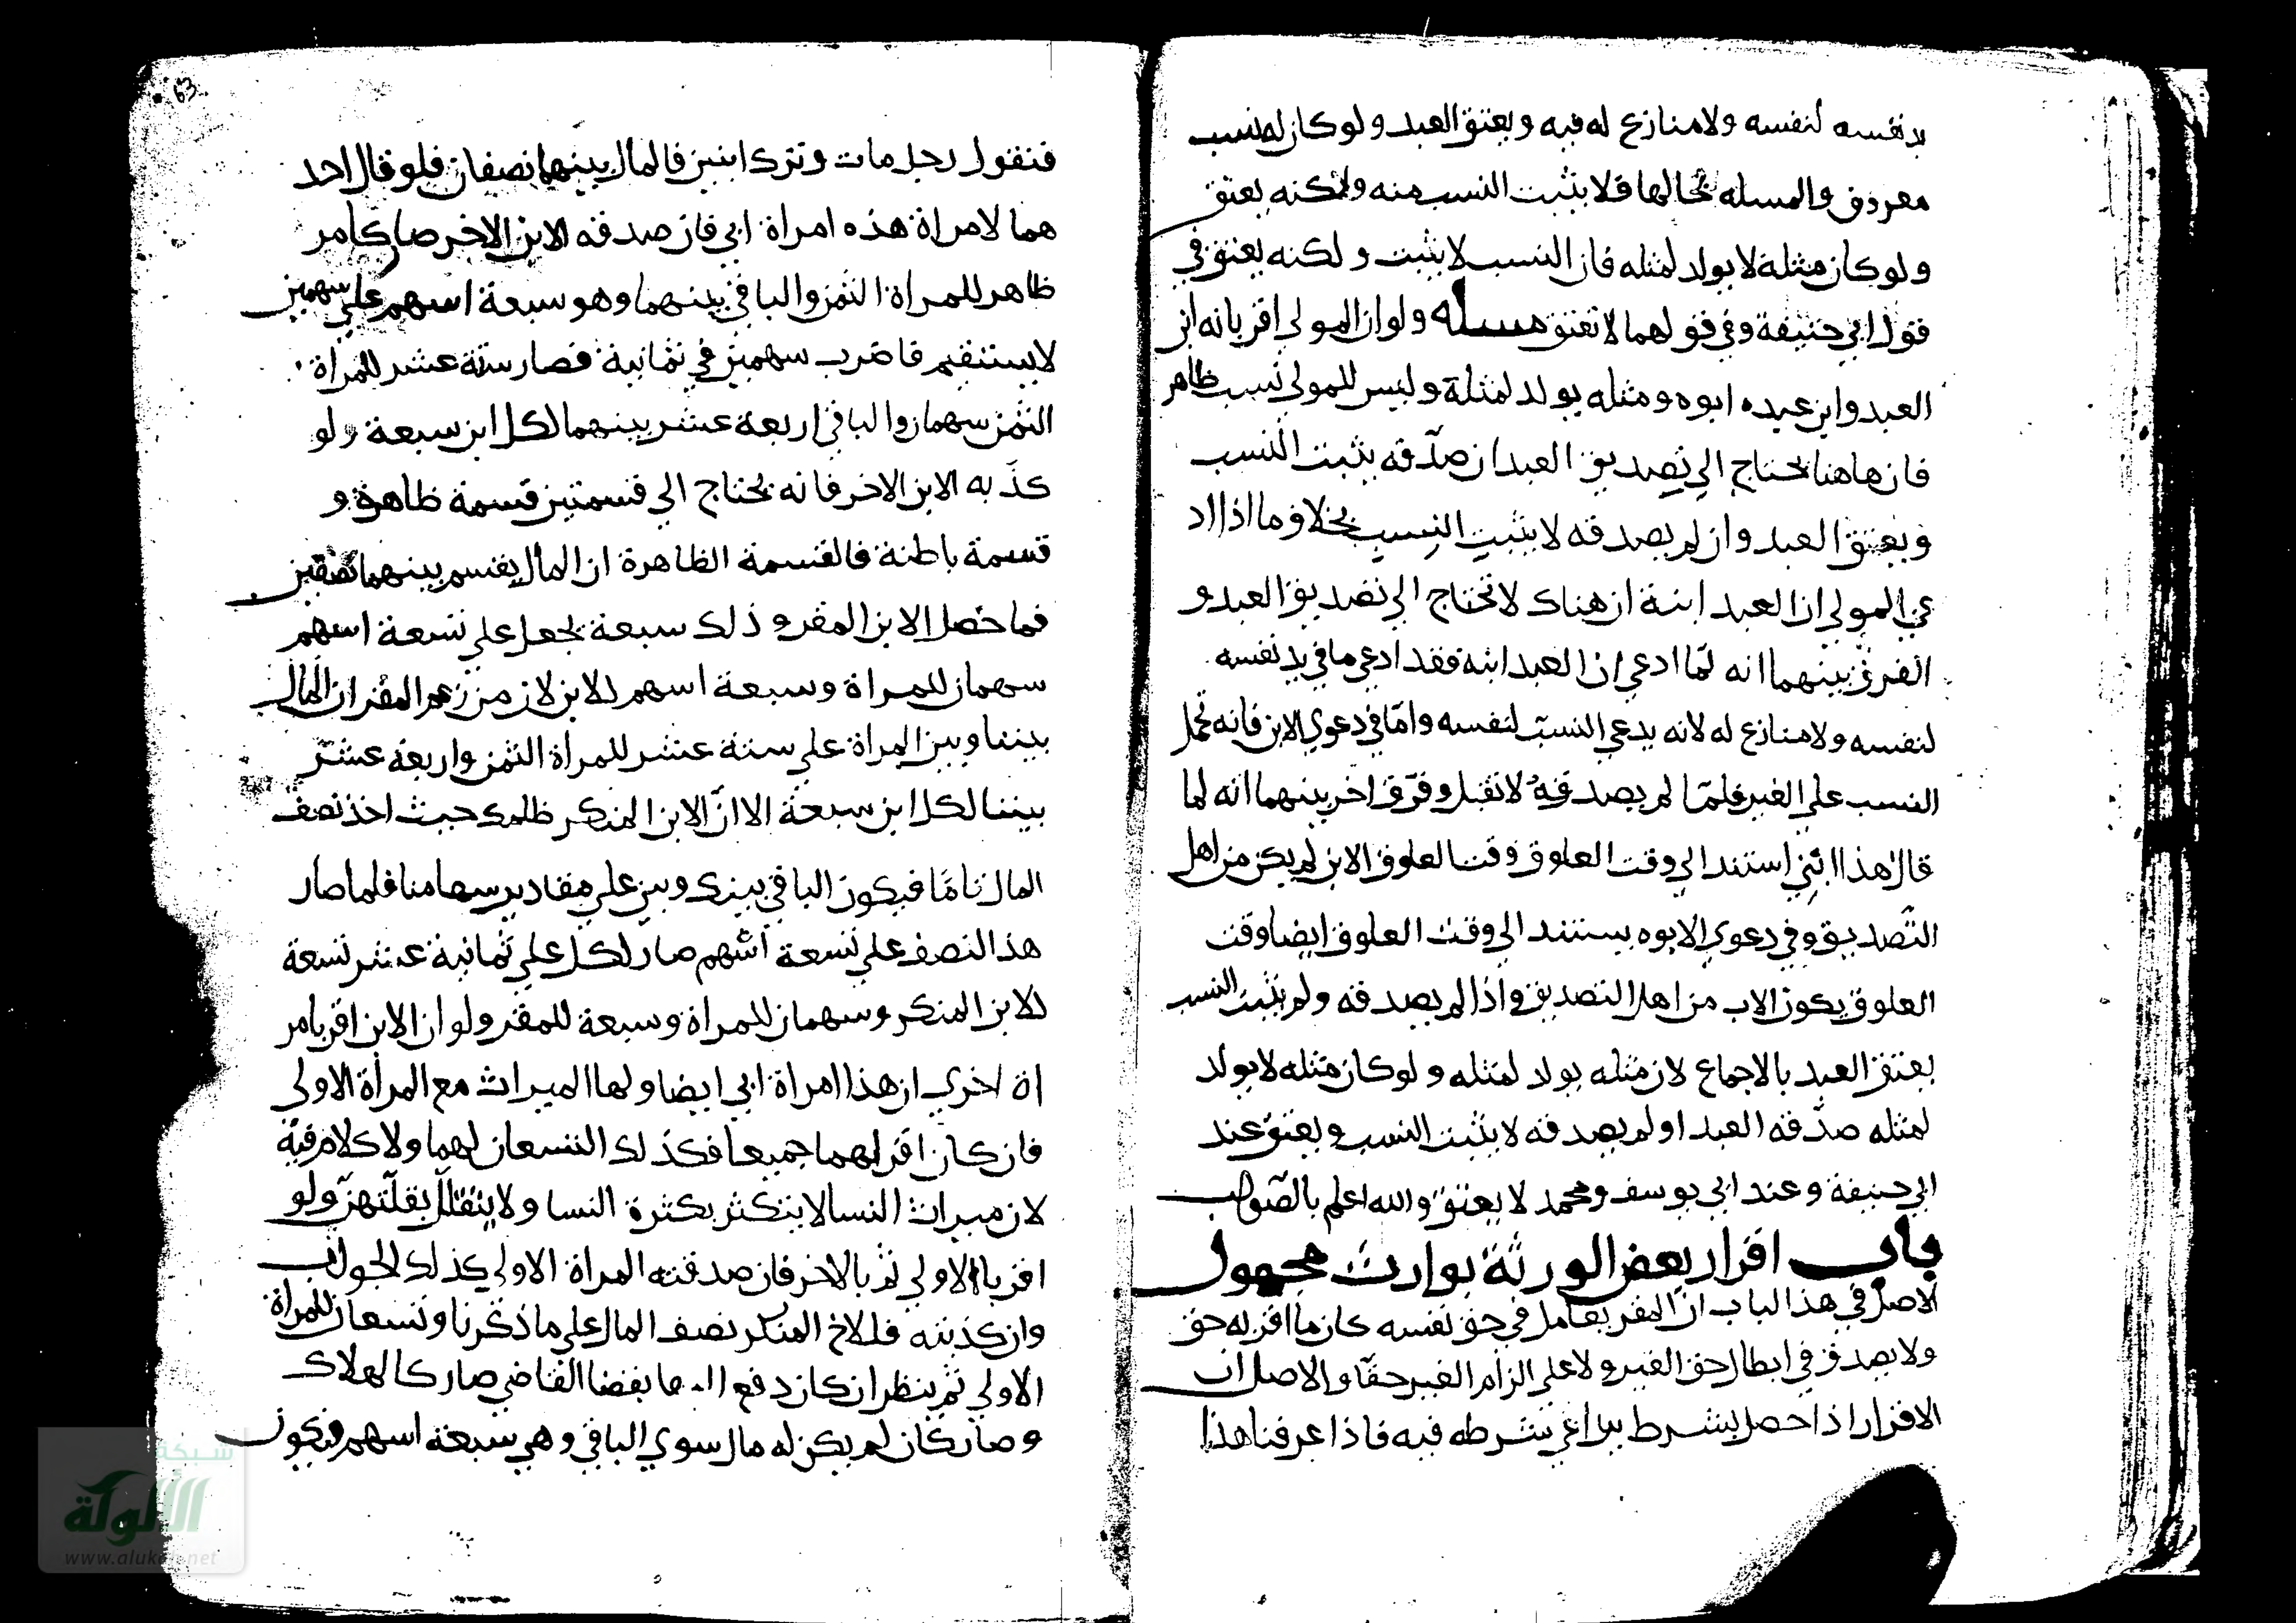 يد نفسه لنفسه ولا منازع له فيه ويعتق العبد ولو كان له نسب
معروف والمسله بحالها فلا يثبت النسب منه ولكنه يعتق
ولو كان مثله لا يولد لمثله فان النسب لا يثبت ولكنه يعتق في
قول ابي حنيفة وفي قولهما لا تعتق مسله ولو ان المولى اقر بانه ابن
العبد وابن عبده ابوه ومثله يولد لمثلة وليس للمولي نسب ظاهر
فان هاهنا يحتاج الي تصديق العبد ان صدّقه يثبت النسب
ويعتق العبد وان لم يصدقه لا يثبت النسب بخلاف ما اذا اد
عي المولي ان العبد ابنة ان هناك لا تحتاج الي تصديق العبد و
الفرق بينهما انه لمّا ادعي ان العبد ابنه فقد ادعي ما في يد نفسه
لنفسه ولا منازع له لانه يدعي النسب لنفسه وامّا في دعوي الابن فانه تحمل
النسب علي الغير فلمّا لم يصدقه لا تقبل وفرق اخر بينهما انه لما
قال هذا ابني استند الي وقت العلوق وقت العلوق الابن لم يكن من اهل
التّصديق وفي دعوي الابوه يستند الي وقت العلوق ايضا وقت
العلوق يكون الاب من اهل التصديق واذا لم يصدقه ولم يثبت النسب
يعتق العبد بالاجماع لان مثله يولد لمثله ولو كان مثله لا يولد
لمثله صدّقه العبد او لم يصدقه لا يثبت النسب ويعتق عند
ابي حنيفة وعند ابي يوسف ومحمد لا يعتق والله اعلم بالصّواب
باب اقرار بعض الورثة بوارث مجهول
الاصل في هذا الباب انّ المقر يعامل في حق نفسه كان ما اقر به حق
ولا يصدق في ابطال حق الغير ولا علي الزام الغير حقّا والاصل ان
الاقرار اذا حصل بشرط يراعي شرطه فيه فاذا عرفنا هذا
63
فنقول رجل مات وترك ابنين فالمال بينهما نصفان فلو قال احد
هما لامراة هذه امراة ابي فان صدقه الابن الاخر صار كامر
ظاهر للمراة الثمن والباقي بينهما وهو سبعة اسهم علي سهمين
لا يستقيم فاضرب سهمين في ثمانية فصار ستة عشر للمراة
الثمن سهمان والباقي اربعة عشر بينهما لكل ابن سبعة ولو
كذّبه الابن الاخر فانه يحتاج الي قسمتين قسمة ظاهرة و
قسمة باطنة فالقسمة الظاهرة ان المال يقسم بينهما نصفين
فما حصل الابن المقر وذلك سبعة يجعل علي تسعة اسهم
سهمان للمراة وسبعة اسهم للابن لان من زعم المقر ان المال
بيننا وبين المراة علي ستة عشر للمراة الثمن واربعة عشر
بيننا لكل ابن سبعة الا انّ الابن المنكر ظلمك حيث اخذ نصف
المال تامّا فيكون الباقي بينك وبين علي مقادير سهامنا فلما صار
هذا النصف علي تسعة اسهم صار لكل علي ثمانية عشر تسعة
للابن المنكر وسهمان للمراة وسبعة للمقر ولو ان الابن اقر بامر
اة اخري ان هذا امراة ابي ايضا ولها الميراث مع المراة الاولى
فان كان اقر لهما جميعا فكذلك التسعان لهما ولا كلام فيه
لان ميراث النسا لا يتكثر بكثرة النسا ولا يتقلل بقلّتهنّ ولو
اقر بالاولي ثم بالاخر فان صدقته المراة الاولي كذلك الجواب
وان كذبته فللاخ المنكر نصف المال علي ما ذكرنا وتسعان للمراة
الاولي ثم ينظر ان كان دفع بقضا القاضي صار كالهلاك
وصار كان لم يكن له مال سوي الباقي وهي سبعة اسهم فيكون
شبكة
الألوكة
www.alukah.net